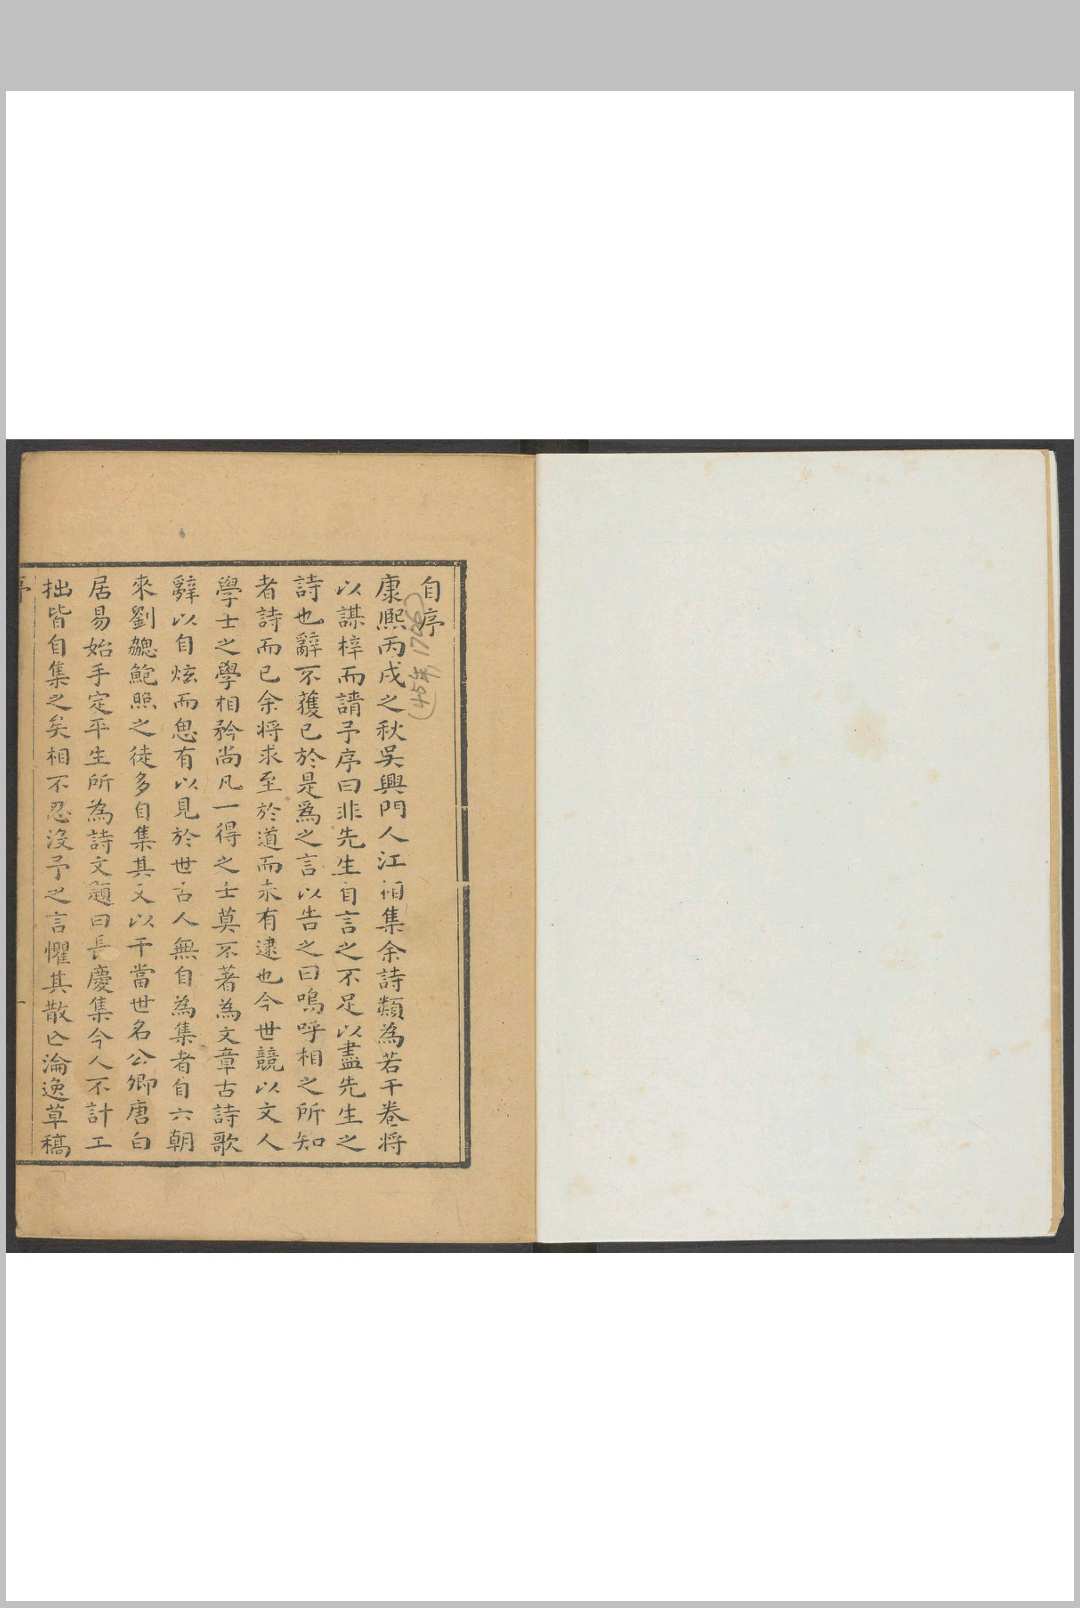 自序
(45年 1706)
康熙丙戌之秋吳興門人江相集余詩類為若干卷將
以謀梓而請予序曰非先生自言之不足以盡先生之
詩也辭不獲已於是爲之言以告之曰嗚呼相之所知
者詩而已余將求至於道而未有逮也今世競以文人
學士之學相矜尚凡一得之士莫不著為文章古詩歌
辭以自炫而思有以見於世古人無自為集者自六朝
來劉勰鮑照之徒多自集其文以干當世名公卿唐白
居易始手定平生所為詩文題曰長慶集今人不計工
拙皆自集之矣相不忍沒予之言懼其散亡淪逸草稿
序
一